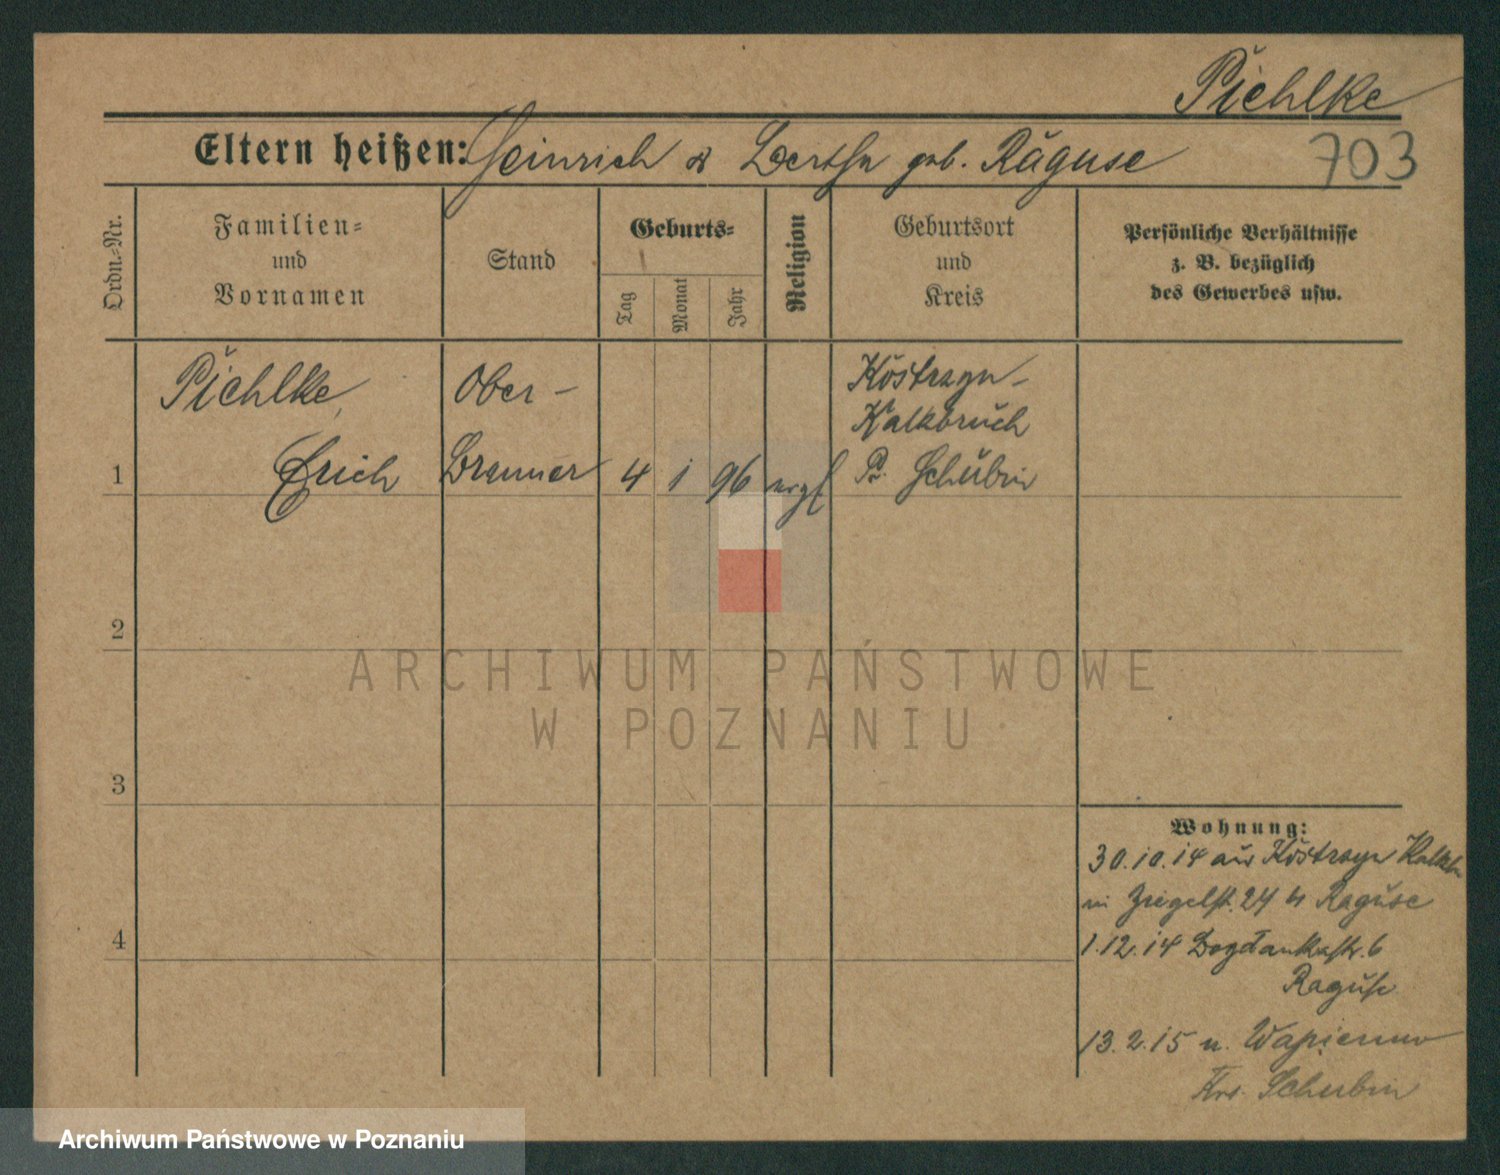 Pichlke
Eltern heißen: Heinrich & Bertha geb. Raguse
703
Ordn.-Nr.
Familien-
und
Vornamen
Stand
Geburts-
Tag
Monat
Jahr
Religion
Geburtsort
und
Kreis
Persönliche Verhältnisse
z. B. bezüglich
des Gewerbes usw.
Pichlke, Ober-
Erich Brenner 4 1 96 evgl
Kostrzyn-
Kalkbruch
Schubin
1
2
3
4
Wohnung:
30.10.14 aus Kostrzyn
Ziegelstr. 24 b Raguse
1.12.14 Bogdankastr. 6
Raguse
13.2.15 n. Wapienno
Krs. Schubin
ARCHIWUM PAŃSTWOWE
W POZNANIU
Archiwum Państwowe w Poznaniu